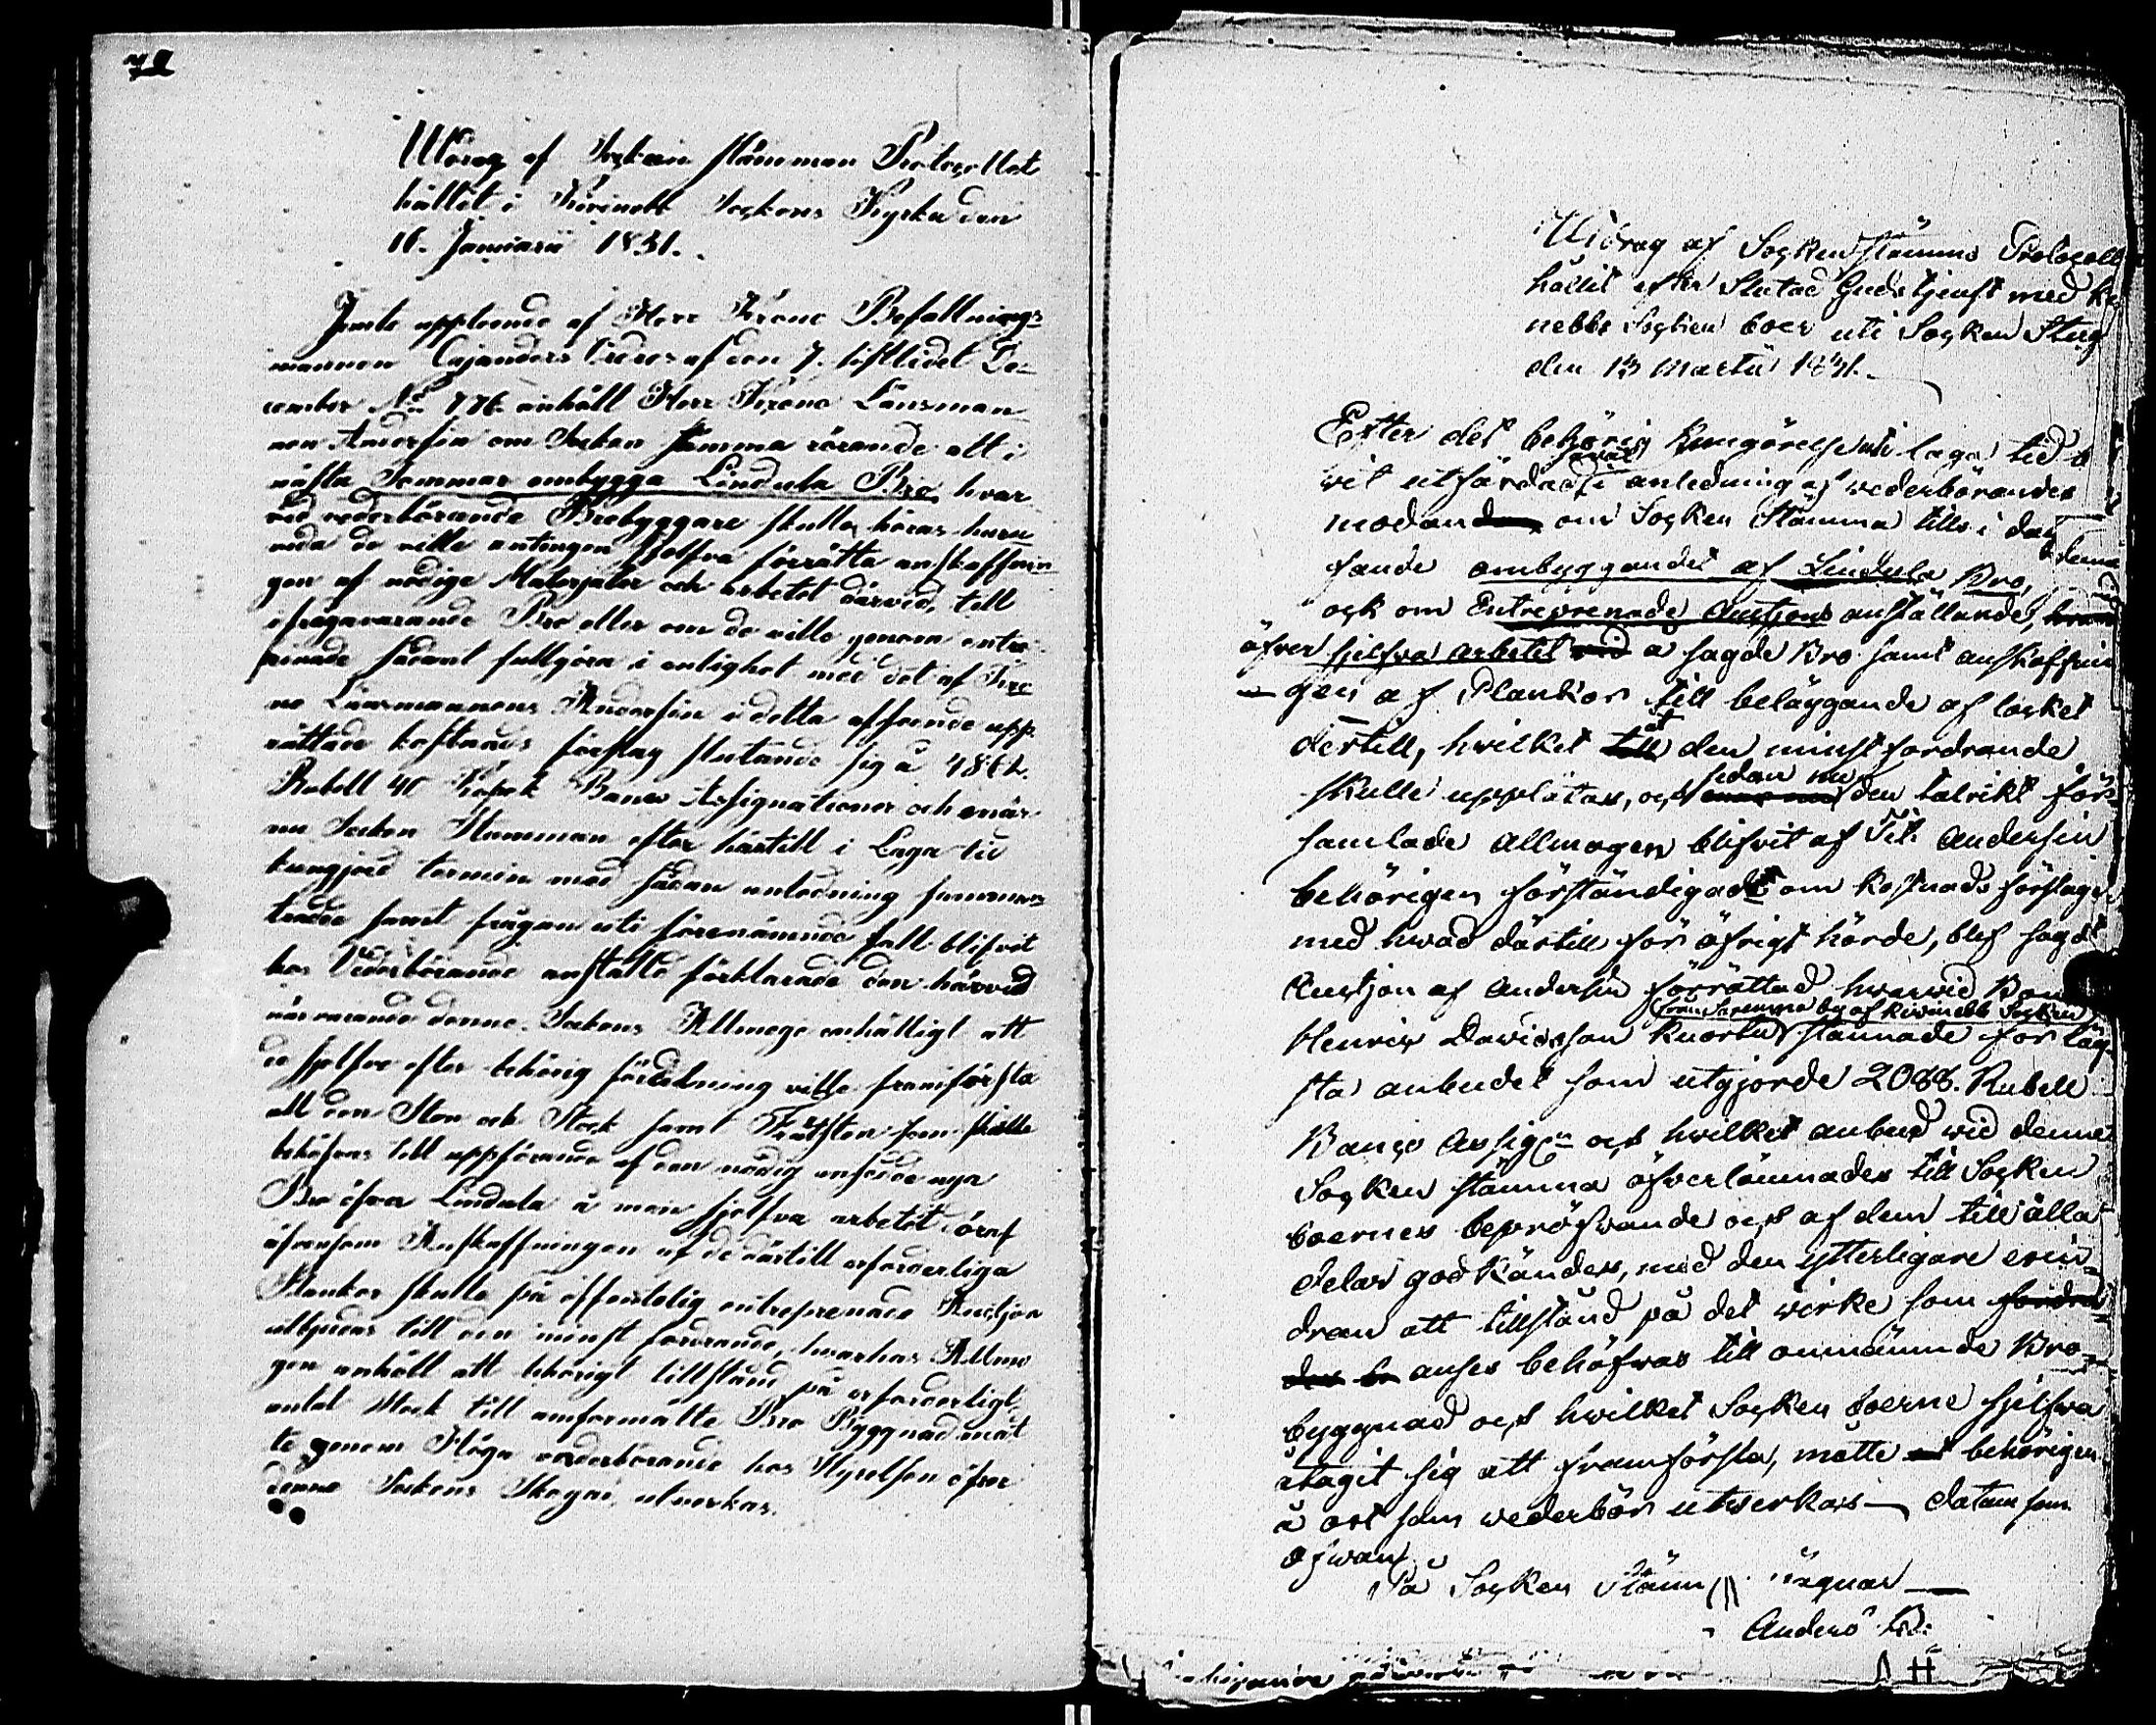 72
Utdrag af Sockenstämmau Protocollet
hållet i Kivinebb Sockens Kyrka den
16. Januarii 1831.
Jemte uppteende af Herr Krono Befallnings-
mannen Cajanders Ordres af den 7. sistlidet De-
cember No 776. anhöll Herr Krono Länsman-
nen Andersin om Socken Stämma rörande att i
nästa Sommar ombygga Lindula Bro, hvar
vid vederbörande Brobyggare skulle höras huru
vida de ville antingen sjelfva förrätta anskaffnin-
gen af nödige Materialer och arbetet därved, till
ifrågavarande Bro eller om de ville genom entre-
prenade sådant fullgöra i enlighet med det af Kro-
no Länsmannens Andersin i detta afseende upp-
rättade kostnads förslag slutande sig à 4862.
Rubell 40 Kopek Banco Assignationer och enär
nu Socken Stämman efter härtill i Laga tid
kungjord termin med sådan anledning samman-
trädde samt frågan uti förenämnde fall blifvit
hos Vederbörande anställd förklarade den härvid
närvarande denne Sockens Allmoge enhälligt att
de sjelfve efter behörig fördelning ville framförsla
all den Sten och Stock samt Träsken som skulle
behöfvas till uppförande af den nödig ansedde nya
Bro öfver Lindula å men sjelfva arbetet deraf
äfvensom Anskaffningen af de därtill erforderliga
Plankor skulle på offentelig entreprenade Auction
utbjudas till den minst fordrande, hvarhos Allmo-
gen anhöll att behörigt tillstånd på erforderligt
antal Stock till omformälte Bro Byggnad mät-
te genom Höga vederbörande hos Styrelsen öfver
denne Sockens Skogar, utverkas.
Utdrag af Sockenstämmo Protocoll
hållit efter Slutad Gudstjenst med Ki
nebbs Socken boer uti Socken Stug
den 13 Martii 1831.
Efter det behörig kungörelse uti laga tid b
vit utfärdad i anledning af wederbörandes
modan om Socken Stämma tills i dag
ombyggandet af Lindula Bro,
ock om Entreprenade Auctions anställande,
öfver sjelfva arbetet å sagde Bro samt anskaffnin
gen af Plankor till beläggande af locket
dertill, hvilket åt den minst fordrande
skulle upplåtas, och sedan nu den talrikt för-
samlade Allmogen blifvit af Tit. Andersin
behörigen förständigad om kostnads förslaget
med hwad därtill för öfrigt hörde, blef sagde
Auction af Andersin förrättad hwarvid Bon
från by af Kivinebb Socken
Henrik Davidsson Kuortti stannade för läg-
sta anbudet som utgjorde 2088. Rubell
Banco Assign och hvilket anbud wid denne
Socken stämma öfverlämnades till Socken
boernes bepröfwande och af dem till alla
delar godkändes, med den ytterligare erin-
dran att tillstånd på det wirke som
anses behöfvas till omnämnde Bro-
byggnad och hvilket Socken boerne sjelfwa
åtagit sig att framförsla, måtte behörigen
å ort som wederbör utwerkas — datum som
ofwan
På Socken Stämm vägnar —